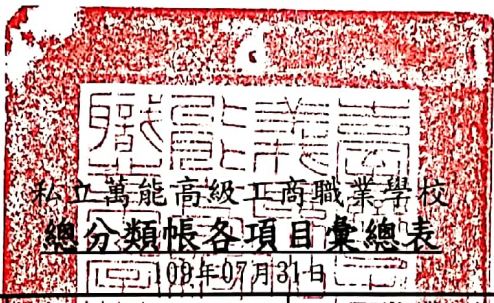 私立萬能高級工商職業學校
總分類帳各項目彙總表
109年07月31日